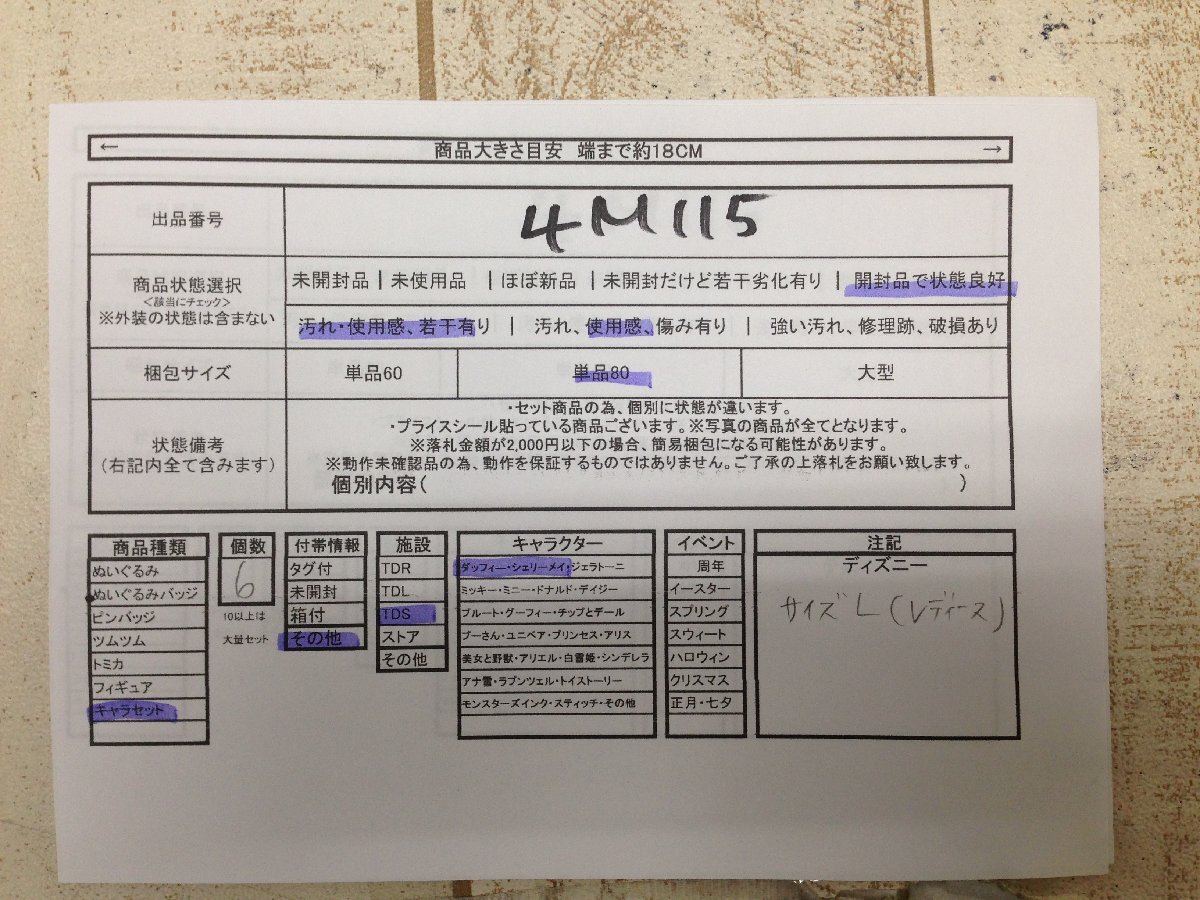 ← 商品大きさ目安 端まで約18CM →
出品番号 4M115
商品状態選択
<該当にチェック>
※外装の状態は含まない
未開封品 | 未使用品 | ほぼ新品 | 未開封だけど若干劣化有り | 開封品で状態良好
汚れ・使用感、若干有り | 汚れ、使用感、傷み有り | 強い汚れ、修理跡、破損あり
梱包サイズ 単品60 単品80 大型
状態備考
(右記内全て含みます)
・セット商品の為、個別に状態が違います。
・プライスシール貼っている商品ございます。※写真の商品が全てとなります。
※落札金額が2,000円以下の場合、簡易梱包になる可能性があります。
※動作未確認品の為、動作を保証するものではありません。ご了承の上落札をお願い致します。
個別内容( )
商品種類
ぬいぐるみ
ぬいぐるみバッジ
ピンバッジ
ツムツム
トミカ
フィギュア
キャラセット
個数
6
10以上は
大量セット
付帯情報
タグ付
未開封
箱付
その他
施設
TDR
TDL
TDS
ストア
その他
キャラクター
ダッフィー・シェリーメイ・ジェラトーニ
ミッキー・ミニー・ドナルド・デイジー
プルート・グーフィー・チップとデール
プーさん・ユニベア・プリンセス・アリス
美女と野獣・アリエル・白雪姫・シンデレラ
アナ雪・ラプンツェル・トイストーリー
モンスターズインク・スティッチ・その他
イベント
周年
イースター
スプリング
スウィート
ハロウィン
クリスマス
正月・七夕
注記
ディズニー
サイズ L (レディース)